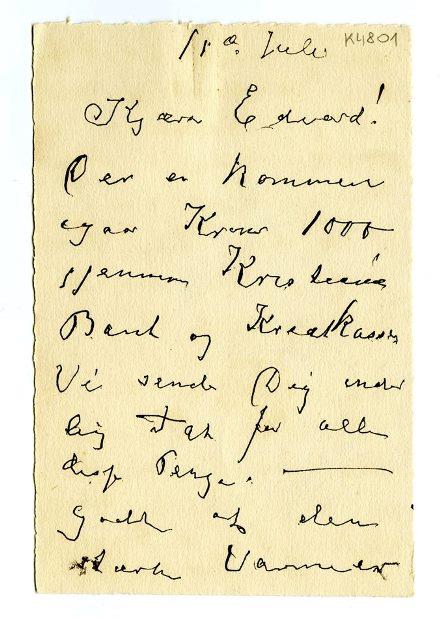 Juli K4801
Kjære Edvard!
Der er kommen
igaar Kroner 1000
gjennem Kristiania
Bank og Kreditkasse
Vi sende Dig inder
lig Tak for alle
disse Penge. —
af den
stærke Varme er